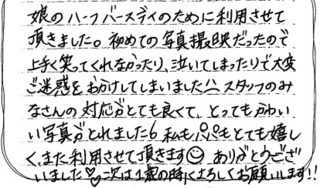 娘のハーフバースデイのために利用させて
頂きました。初めての写真撮影だったので
上手く笑ってくれなかったり、泣いてしまったりで大変
ご迷惑をおかけしてしまいました スタッフのみ
なさんの対応がとても良くて、とってもかわい
い写真がとれました 私もパパもとても嬉し
く、また利用させて頂きます☺ ありがとうござ
いました♡ 次は1歳の時によろしくお願いします!!